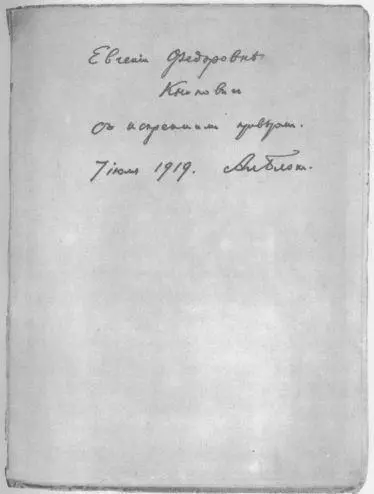 Евгеніи Федоровнѣ
Книпович
съ искреннимъ привѣтом.
7 іюля 1919. Ал Блок.